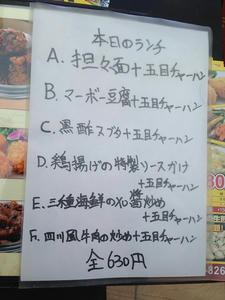 本日のランチ
A. 担々面+五目チャーハン
B. マーボー豆腐+五目チャーハン
C. 黒酢スブタ+五目チャーハン
D. 鶏揚げの特製ソースかけ
+五目チャーハン
E. 三種海鮮のXO醤炒め
+五目チャーハン
F. 四川風牛肉の炒め+五目チャーハン
全630円